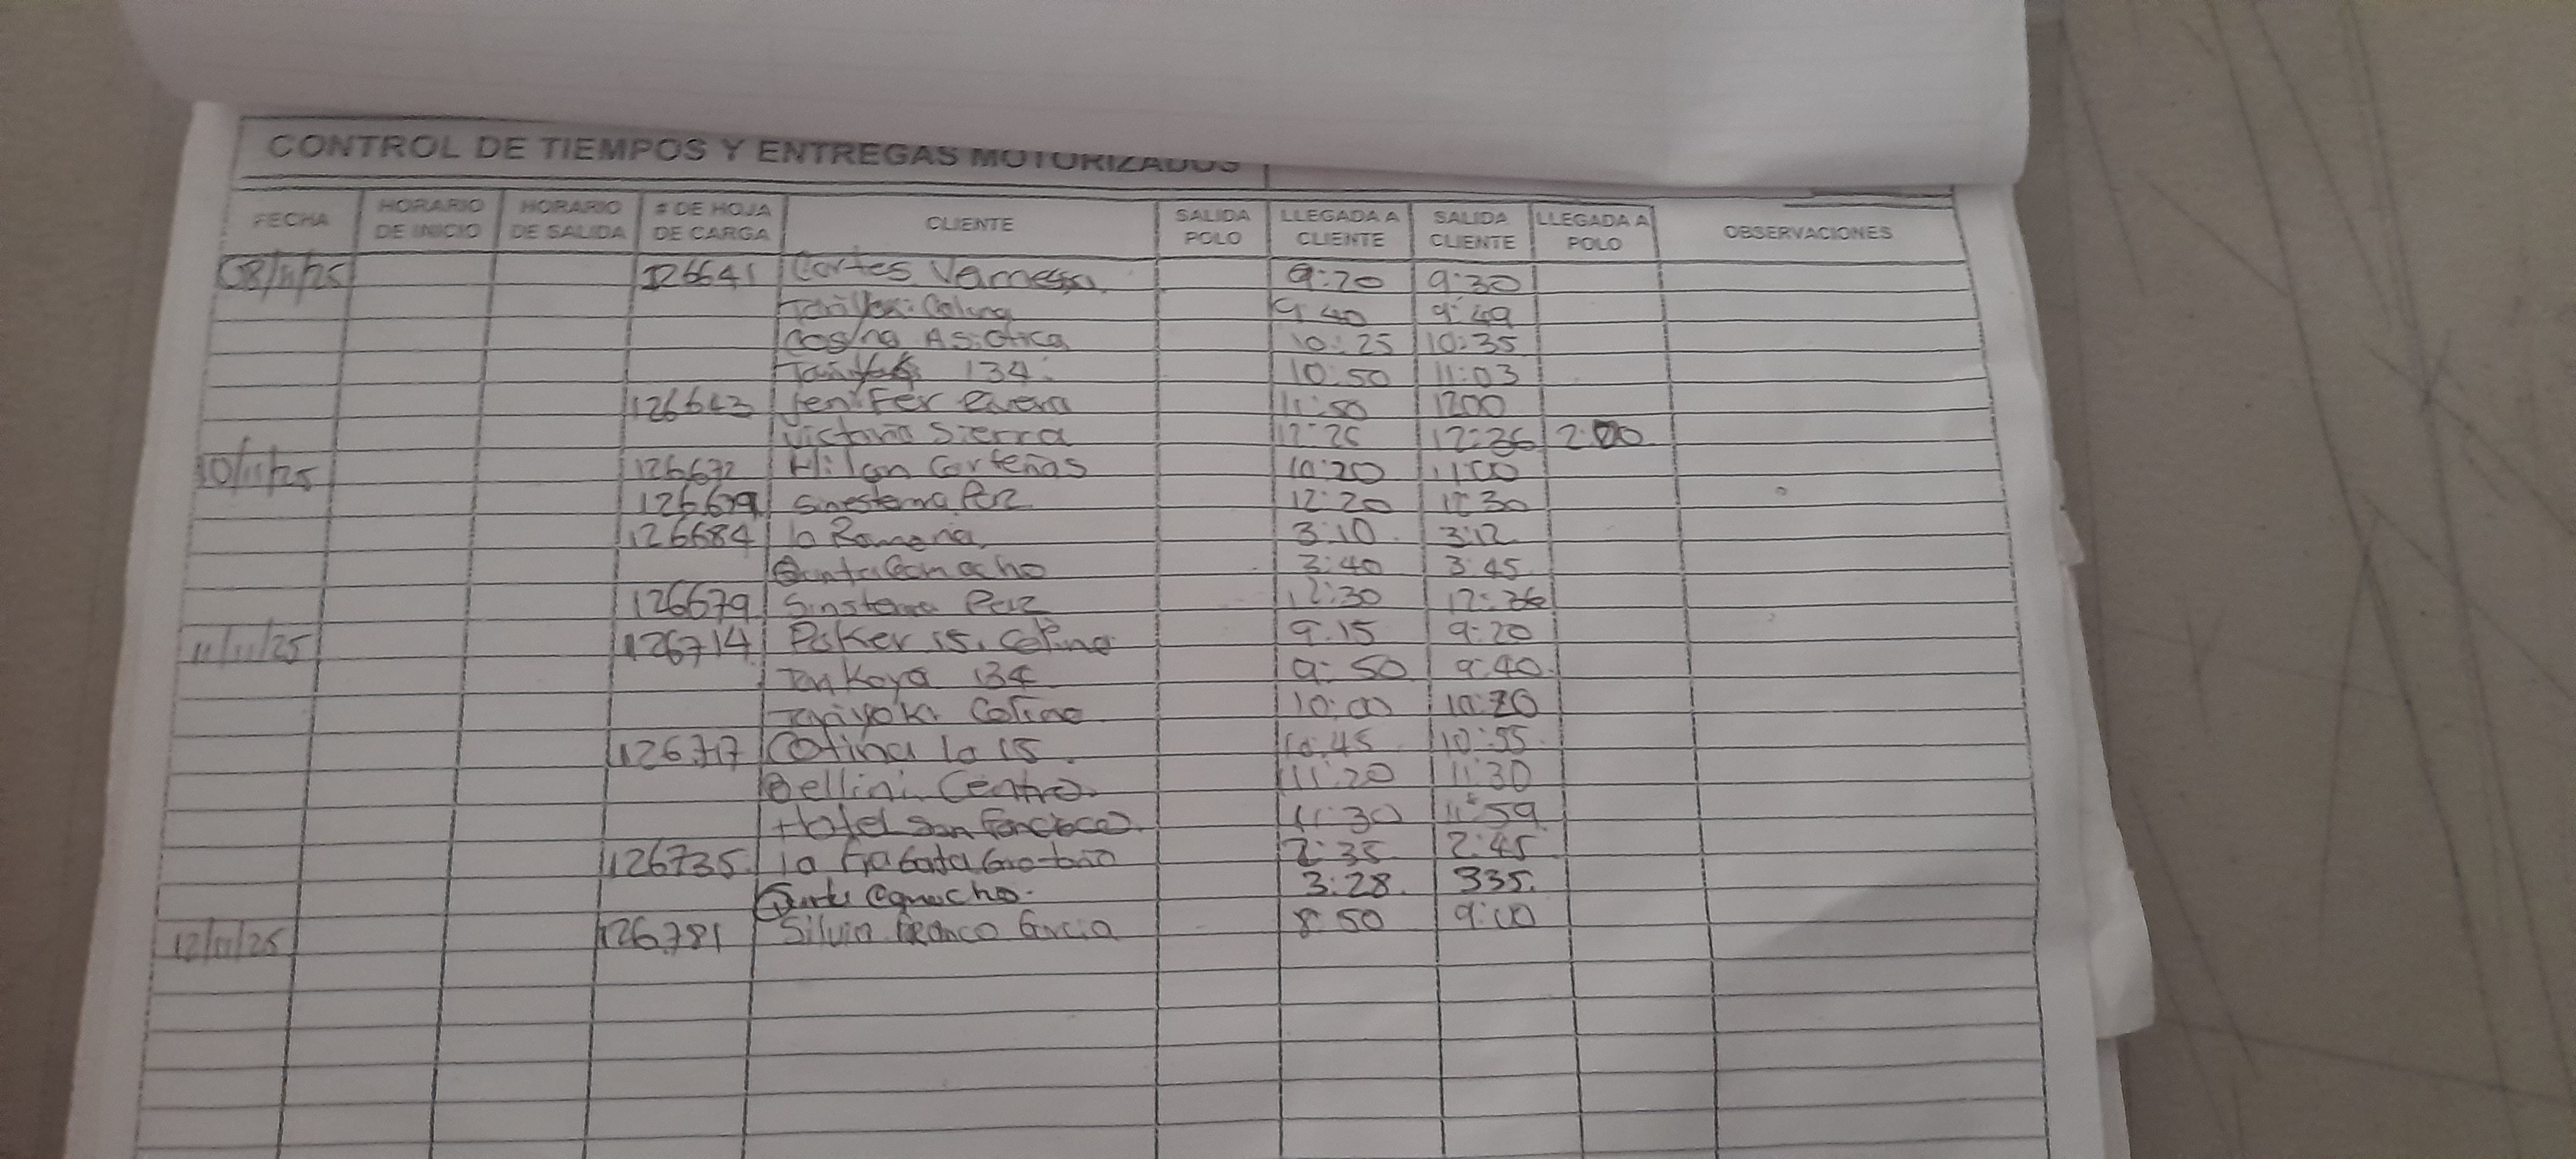 CONTROL DE TIEMPOS Y ENTREGAS MOTORIZADOS
FECHA HORARIO DE INICIO HORARIO DE SALIDA # DE HOJA DE CARGA CLIENTE SALIDA POLO LLEGADA A CLIENTE SALIDA CLIENTE LLEGADA A POLO OBSERVACIONES
08/11/25 126641 Cortes Vannessa 9:20 9:30
9:40 9:49
Asiatica 10:25 10:35
134 10:50 11:03
126643 Jenifer Rivera 11:50 1200
Victoria Sierra 12:26 12:36 2:00
10/11/25 126672 Milan Carteñas 10:20 11:00
126679 Sinestema Paz 12:20 12:30
126684 la Romena 3:10 3:12
Quinta Camacho 3:40 3:45
126679 Sinstema Paz 12:30 12:36
11/11/25 126714 Poker 15. Colina 9:15 9:20
Tankaya 134 9:50 9:40
Taniyoki Colina 10:00 10:20
126717 Cofina la 15. 10:45 10:55
Bellini Centro 11:20 11:30
Hotel San 11:30 11:59
126735 la 2:35 2:45
Quinta Camacho. 3:28 335
12/11/25 126781 Silvia Franco Garcia 8:50 9:00